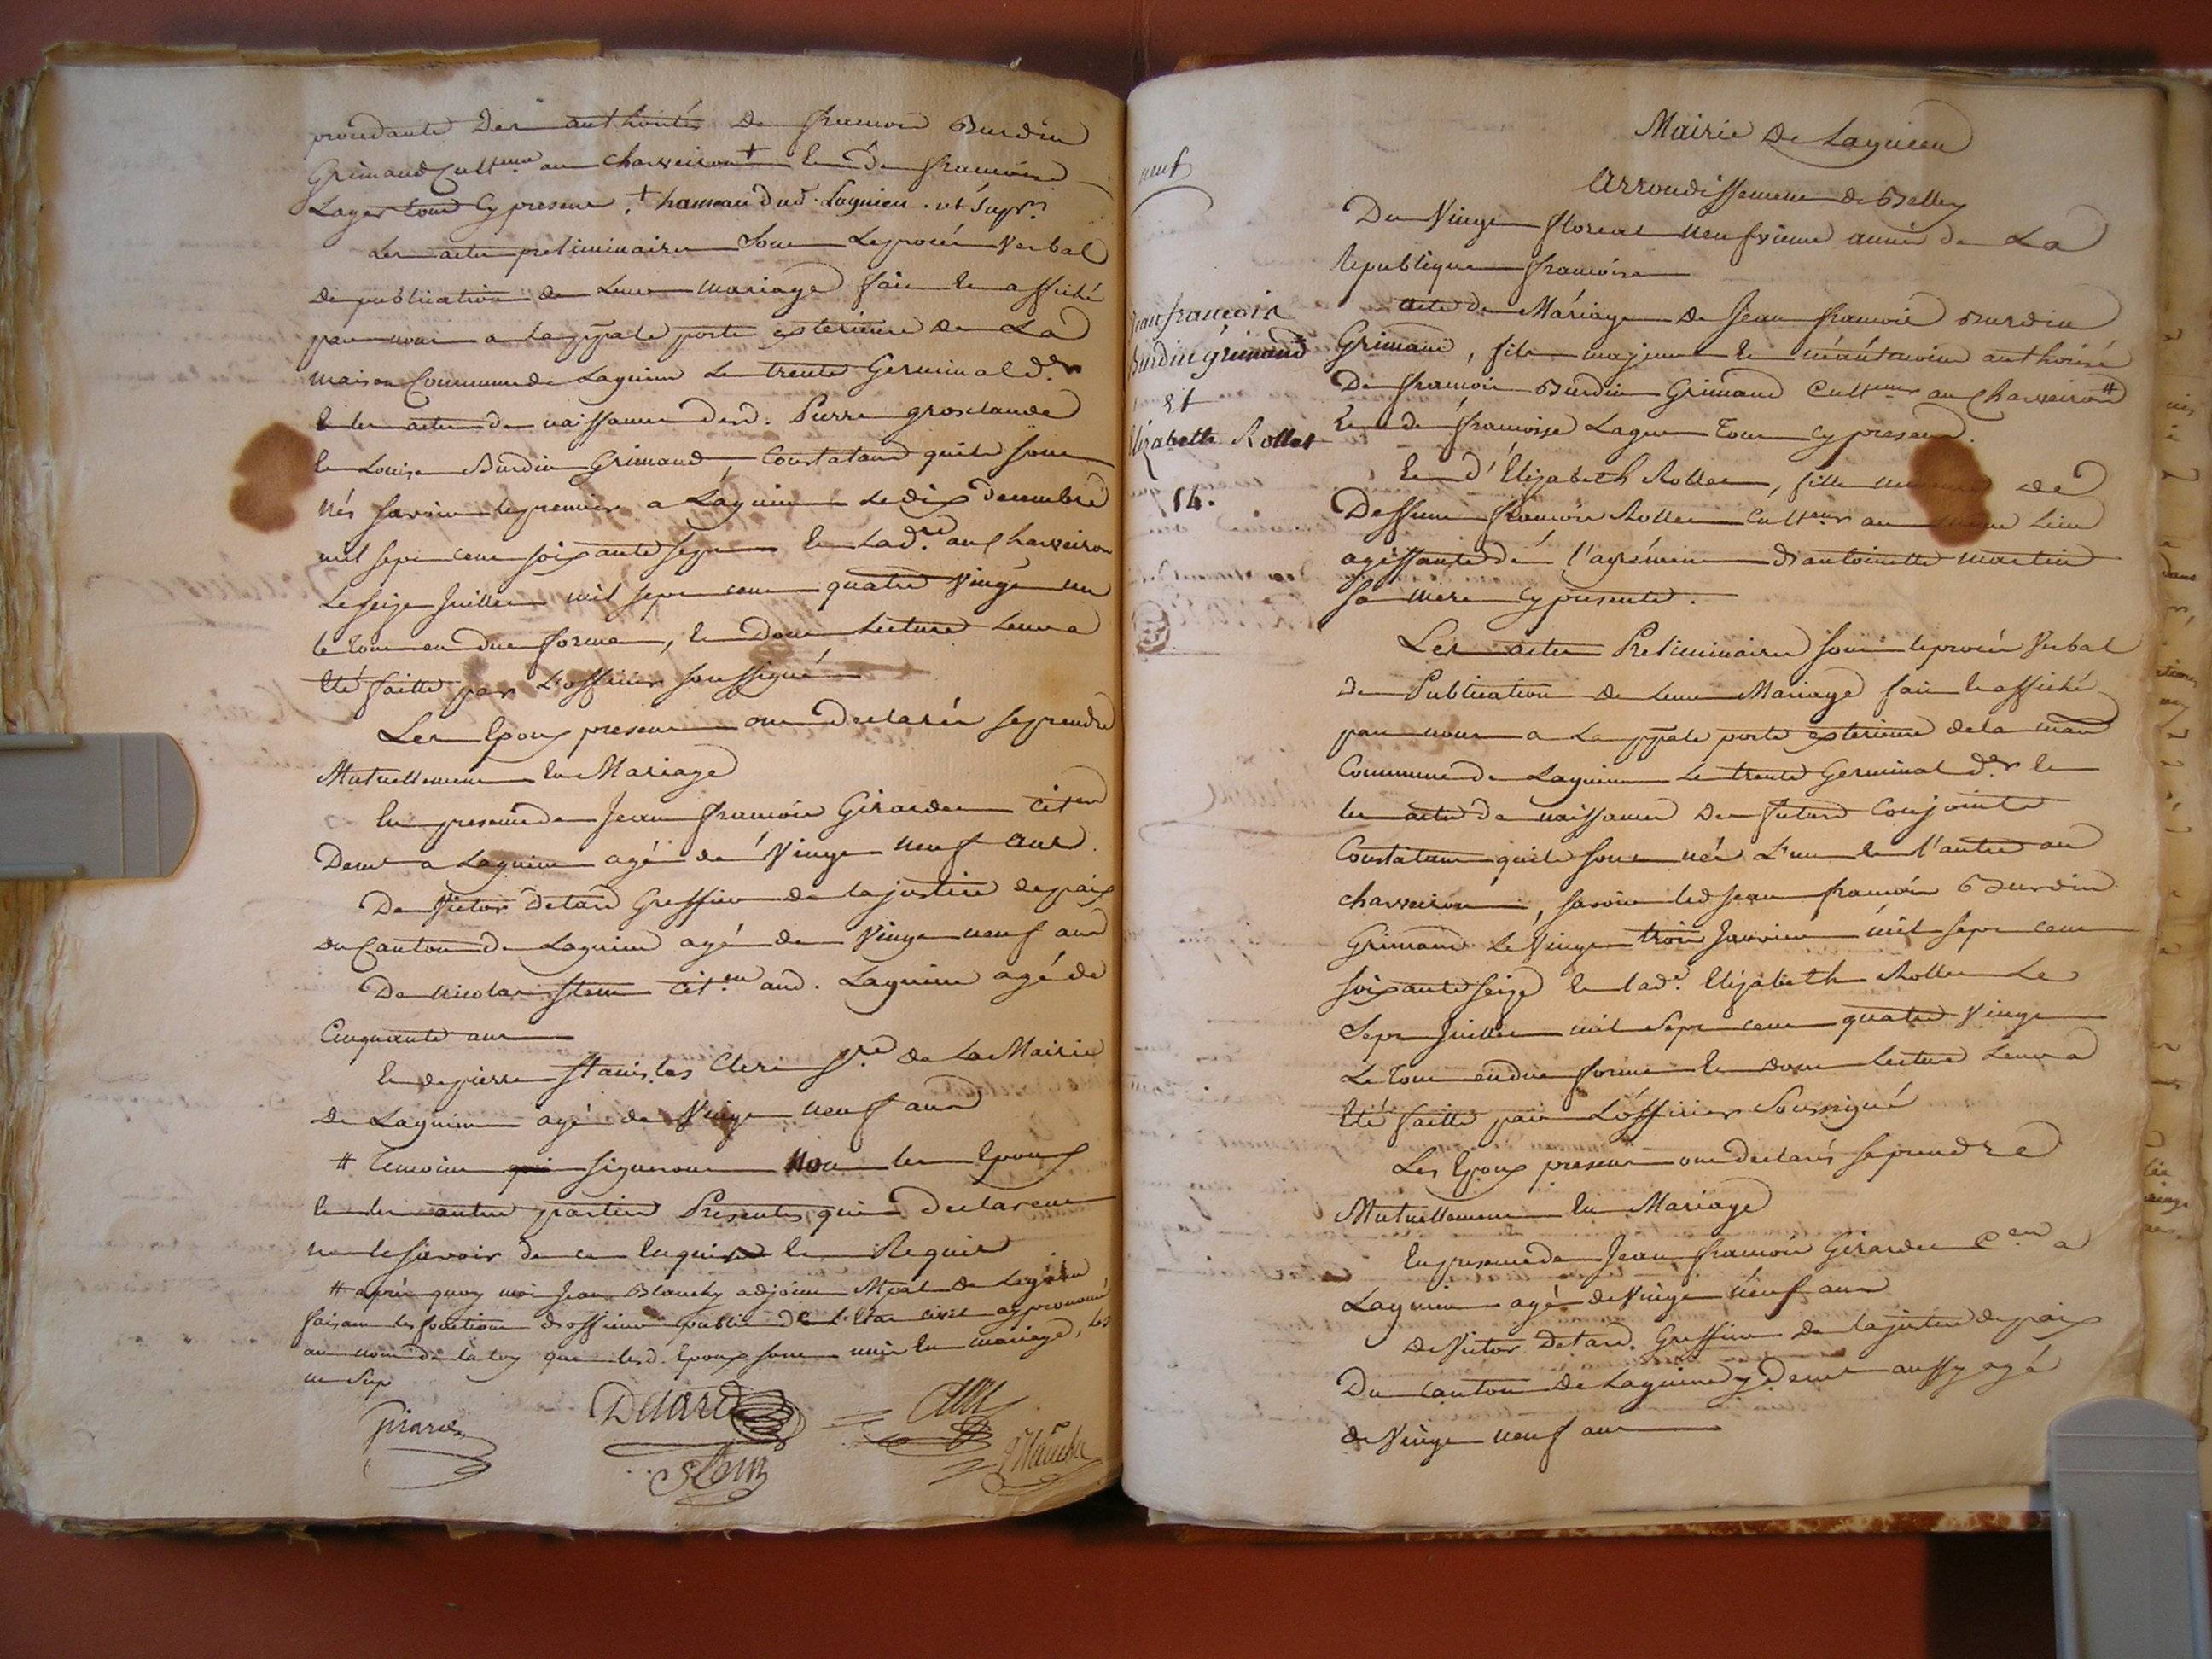 procedante des authorités de francois Burdin
Grimand Cult.eur au charveiron + et de francoise
Lager tous cy presens, + hameau dud. Lagnieu. ut supr.
Les actes preliminaires sont le procès verbal
de publication de leur mariage fait et affiché
par nous a la ppale porte exterieure de La
maison Commune de Lagnieu le trente Germinal d.er
et les actes de naissance desd. Pierre grosclaude
et Louise Burdin Grimand, Constatant quils sont
nés savoir le premier a Lagnieu le dix decembre
mil sept cent soixante sept et lad.e au charveiron
le seize Juillet mil sept cent quatre vingt un
le tout en due forme, et dont lecture leur a
eté faitte par L'officier soussigné
Les Epoux presens ont declarés se prendre
Mutuellement en Mariage
En presence de Jean francois Girardet cit.en
Demt a Lagnieu agé de vingt neuf ans.
De Victor Detard Greffier de la justice de paix
du Canton de Lagnieu agé de vingt neuf ans
De Nicolas Stem cit.en aud. Lagnieu agé de
Cinquante ans
Et de pierre Stanislas Clerc S.re de La Mairie
de Lagnieu agé de Vingt neuf ans
# Temoins qui signeront Non les Epoux
et les autres parties Presentes qui declarent
ne le savoir de ce Enquis et Requis
# après quoy moi Jean Blanchy adjoint Mpal de Lagnieu
faisant les fonctions d'officier public de L'Etat civil ay prononcé
au nom de la loy que lesd. Epoux sont unis en mariage, les
ut sup
Girardet
Detard
Clerc
Stem
Blanchy
neuf
Jean francois
Burdin grimand
et
Elizabette Rollet
14.
Mairie de Lagnieu
Arrondissement de Belley
Du Vingt floreal neufvieme année de La
Republique francoise
acte de Mariage de Jean francois Burdin
Grimand, fils majeur et néantmoins authorisé
De francois Burdin Grimand Cult.eur au Charveiron #
Et de francoise Lager Tous cy presens.
Et d'Elizabeth Rollet, fille de
Deffunt francois Rollet cult.eur au même lieu
agissante de l'agrément d'antoinette martin
sa mere cy presente.
Les actes Preliminaires sont le procès verbal
de Publication de leur Mariage fait et affiché
par nous a La ppale porte exterieure de la mais
Commune de Lagnieu le trente Germinal d.er et
les actes de naissance des futurs Conjoints
Constatant quils sont nés L'un et l'autre au
charveiron, savoir led Jean francois Burdin
Grimand le Vingt trois Janvier mil sept cent
soixante seize et lad.e Elizabeth Rollet Le
Sept Juillet mil sept cent quatre Vingt
Le Tout en due forme et dont lecture leur a
Eté faitte par L'officier Soussigné
Les Epoux presens ont declarés se prendre
Mutuellement en Mariage
En presence de Jean francois Girardet C.en a
Lagnieu agé de Vingt neuf ans
de Victor Detard Greffier de la justice de paix
Du Canton de Lagnieu y demt aussy agé
de Vingt neuf ans